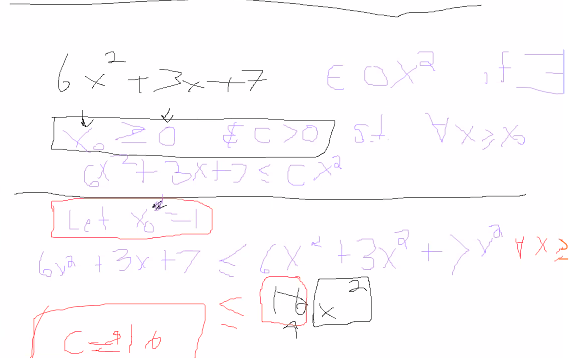 6x² + 3x + 7 ∈ Ox² if ∃
x₀ ≥ 0 & C > 0 s.t ∀x ≥ x₀
6x² + 3x + 7 ≤ Cx²
Let x₀ = 1
6x² + 3x + 7 ≤ 6x² + 3x² + 7x² ∀x ≥
≤ 16 x²
C = 16